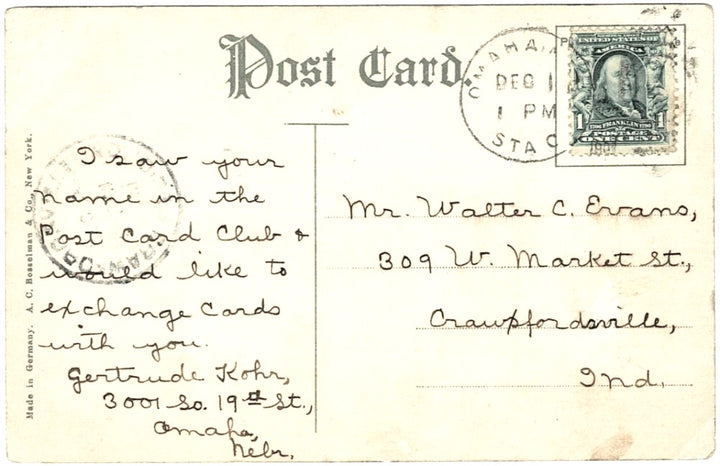 Post Card.
OMAHA
DEC 1
1 PM
STA C
UNITED STATES OF
AMERICA
1
FRANKLIN
POSTAGE
I saw your
name in the
Post Card Club &
would like to
exchange cards
with you.
Gertrude Kohr,
3001 So. 19th St.,
Omaha,
Nebr.
Mr. Walter C. Evans,
309 W. Market St.,
Crawfordsville,
Ind.
Made in Germany. A. C. Bosselman & Co., New York.